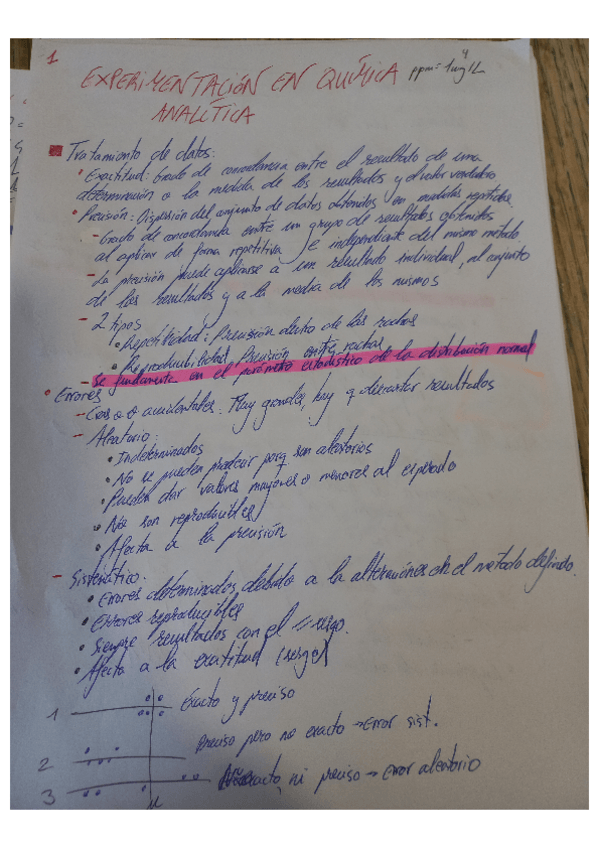 1
EXPERIMENTACIÓN EN QUÍMICA ppm= 1mg/L
ANALÍTICA
Tratamiento de datos:
• Exactitud: Grado de concordancia entre el resultado de una
determinación o la medida de los resultados y el valor verdadero
• Precisión: Dispersión del conjunto de datos obtenidos en medidas repetidas
- Grado de concordancia entre un grupo de resultados obtenidos
al aplicar de forma repetitiva e independiente del mismo método
- La precisión puede aplicarse a un resultado individual, al conjunto
de los resultados y a la media de los mismos
- 2 tipos
• Repetibilidad: Precisión dentro de las rachas
• Reproducibilidad: Precisión entre rachas
- Se fundamenta en el parámetro estadístico de la distribución normal
• Errores
- Crasos o accidentales. Muy grandes, hay q descartar resultados
- Aleatorio:
• Indeterminados
• No se pueden predecir porq son aleatorios
• Pueden dar valores mayores o menores al esperado
• No son reproducibles
• Afecta a la precisión
- Sistemático.
• Errores determinados, debidos a la alteraciones en el método definido.
• Errores reproducibles
• Siempre resultados con el = sesgo.
• Afecta a la exactitud (sesgo)
1 Exacto y preciso
2 Preciso pero no exacto → Error sist.
3 exacto, ni preciso → error aleatorio
μ